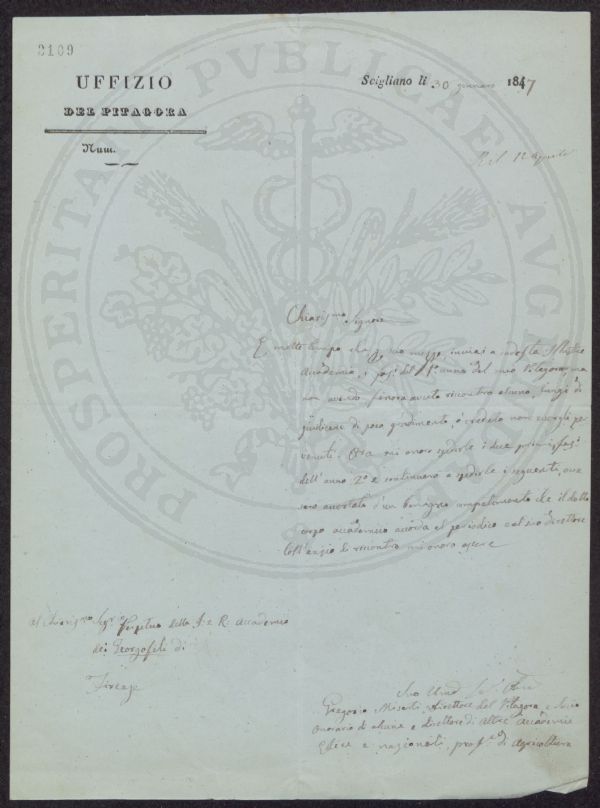 3109
UFFIZIO
DEL PITAGORA
Num.
Scigliano li 30 gennaro 1847
12 Agosto
PROSPERITATI PVBLICAE AVGENDAE
Chiarismo Signore
È molto tempo che suo mezzo, inviai a codesta Illustre
Accademia, i fasi. del 1° anno del mio Pitagora, ma
non avendo finora avuto riscontro alcuno, lungi di
giudicare di poco gradimento, ò creduto non essergli per
venuti. Ora mi onoro spedirle i due primi fasi.
dell'anno 2° e continuerò a spedirle i seguenti, ove
sarò accertato d'un benigno compatimento che il dotto
corpo accademico accorda al periodico e al suo direttore
Coll'ansia di riscontro mi onoro essere
Al Chiarismo Segro Perpetuo della I. e R. Accademia
dei Georgofili di
Firenze
Suo
Gregorio Direttore del Pitagora e Socio
Onorario di alcune e direttore di altre Accademie
Estere e nazionali, profre di Agricoltura